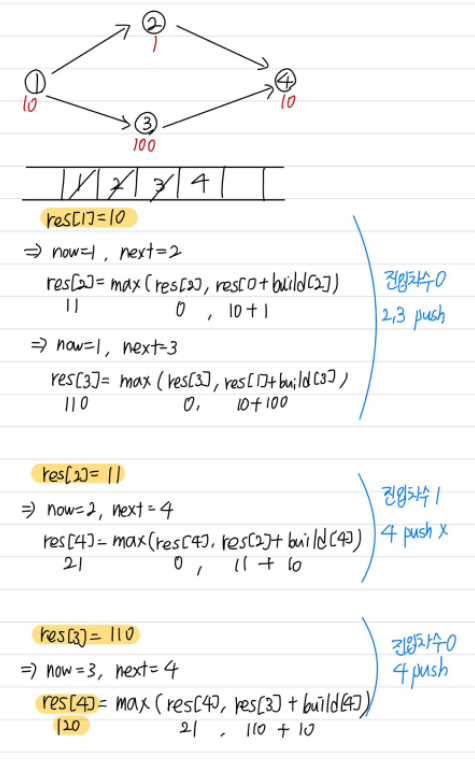 ② 
1
①
10
④
10
③
100
1 2 3 4
res[1]=10
⇒ now=1, next=2
res[2]=max(res[2], res[1]+build[2])
11 0, 10+1
진입차수0
2,3 push
⇒ now=1, next=3
res[3]= max (res[3], res[1]+build[3])
110 0, 10+100
res[2]= 11
⇒ now=2, next=4
res[4]=max(res[4], res[2]+build[4])
21 0, 11+10
진입차수 1
4 push x
res[3]= 110
⇒ now=3, next=4
res[4]= max (res[4], res[3]+build[4])
120 21, 110+10
진입차수0
4 push